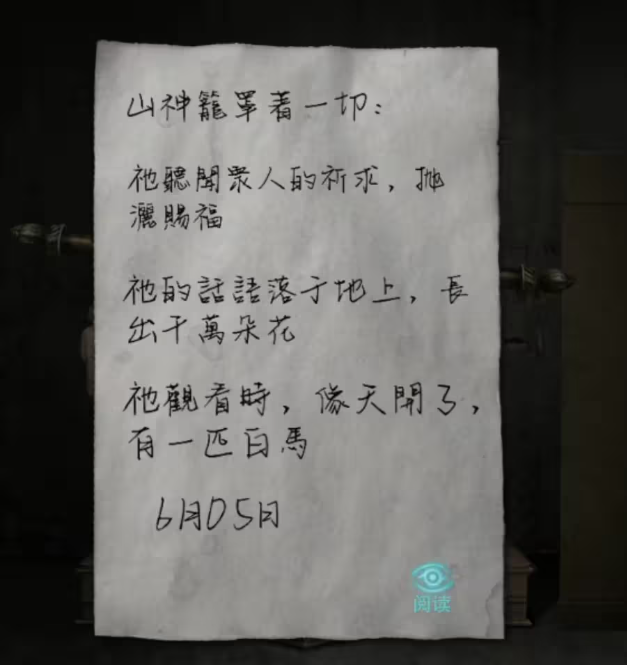 山神籠罩着一切：
祂聽聞眾人的祈求，拋
灑賜福
祂的話語落于地上，長
出千萬朵花
祂觀看時，像天開了，
有一匹白馬
6月05日
阅读